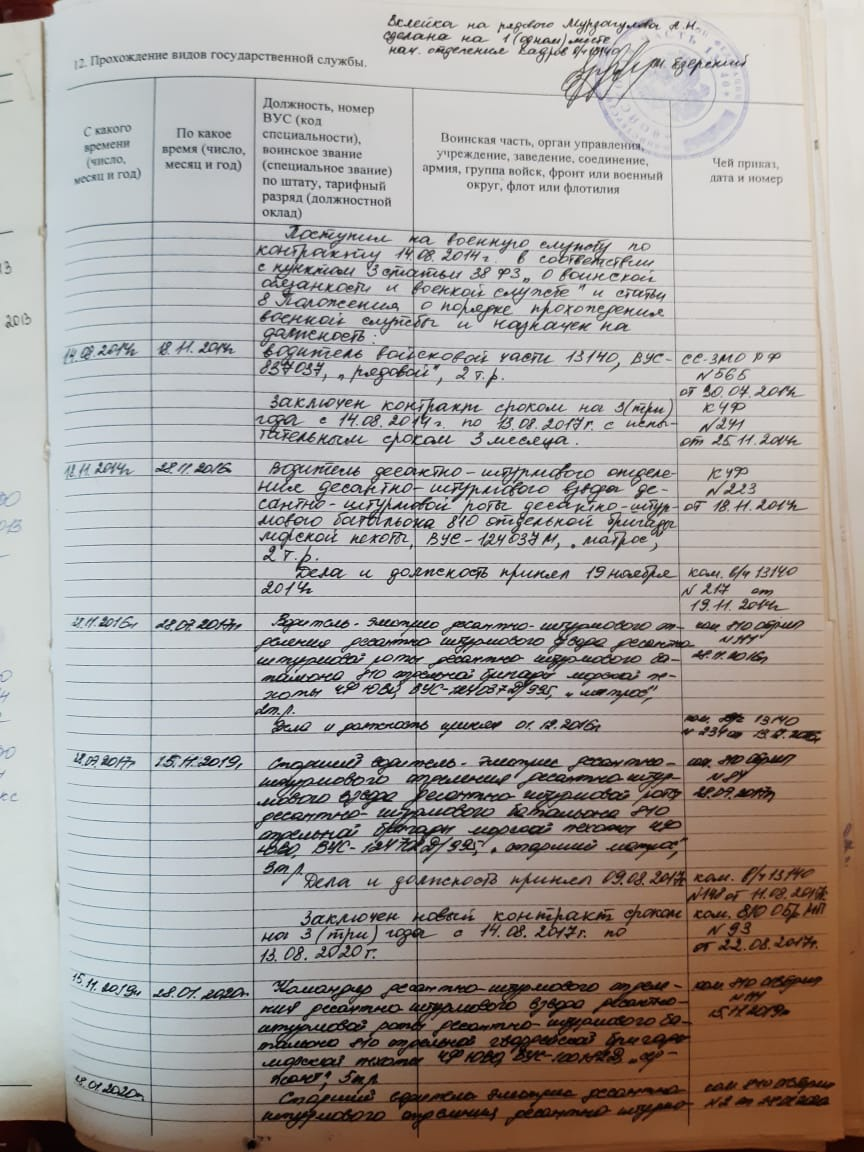 Вклейка на рядового Мурзагулова А.Н.
сделана на 1 (одном) месте
нач. отделения кадров в/ч 13140
12. Прохождение видов государственной службы.
С какого времени (число, месяц и год)
По какое время (число, месяц и год)
Должность, номер ВУС (код специальности), воинское звание (специальное звание) по штату, тарифный разряд (должностной оклад)
Воинская часть, орган управления, учреждение, заведение, соединение, армия, группа войск, фронт или военный округ, флот или флотилия
Чей приказ, дата и номер
Поступил на военную службу по
контракту 14.08.2014г. в соответствии
с пунктом 3 статьи 38 ФЗ „О воинской
обязанности и военной службе" и статьи
8 Положения о порядке прохождения
военной службы и назначен на
должность:
14.08.2014г 18.11.2014г водитель войсковой части 13140, ВУС-
837037, „рядовой", 2 т.р.
СС-ЗМО РФ
N 566
от 30.07.2014г
Заключен контракт сроком на 3(три)
года с 14.08.2014г. по 13.08.2017г. с испы-
тательным сроком 3 месяца.
КЧФ
N 241
от 25.11.2014г
18.11.2014г 28.11.2016г Водитель десантно-штурмового отделе-
ния десантно-штурмового взвода де-
сантно-штурмовой роты десантно-штур-
мового батальона 810 отдельной бригады
морской пехоты, ВУС-124037М, „матрос",
2 т.р.
КЧФ
N 223
от 18.11.2014г
Дела и должность принял 19 ноября
2014г
ком. в/ч 13140
N 217 от
19.11.2014г
28.11.2016г 28.07.2017г Водитель-электрик десантно-штурмового от-
деления десантно-штурмового взвода десантно-
штурмовой роты десантно-штурмового ба-
тальона 810 отдельной бригады морской пе-
хоты ЧФ ЮВО, „матрос",
2т.р.
ком. 810 обрмп
28.11.2016г
Дела и должность принял 01.12.2016г
ком. в/ч 13140
N 234 от
28.07.2017г 15.11.2019г Старший водитель-электрик десантно-
штурмового отделения десантно-штур-
мового взвода десантно-штурмовой роты
десантно-штурмового батальона 810
отдельной бригады морской пехоты ЧФ
ЮВО, „старший матрос",
3т.р.
ком. 810 обрмп
28.07.2017г
Дела и должность принял 09.08.2017г
ком. в/ч 13140
N148 от 11.08.2017г
Заключен новый контракт сроком
на 3 (три) года с 14.08.2017г. по
13.08.2020г.
ком. 810 ОБр МП
N 93
от 22.08.2017г.
15.11.2019г 28.01.2020г Командир десантно-штурмового отделе-
ния десантно-штурмового взвода десантно-
штурмовой роты десантно-штурмового ба-
тальона 810 отдельной гвардейской бригады
морской пехоты ЧФ ЮВО, „сер-
жант", 5т.р.
15.11.2019г
28.01.2020г Старший водитель-электрик десантно-
штурмового отделения десантно-штурмо-